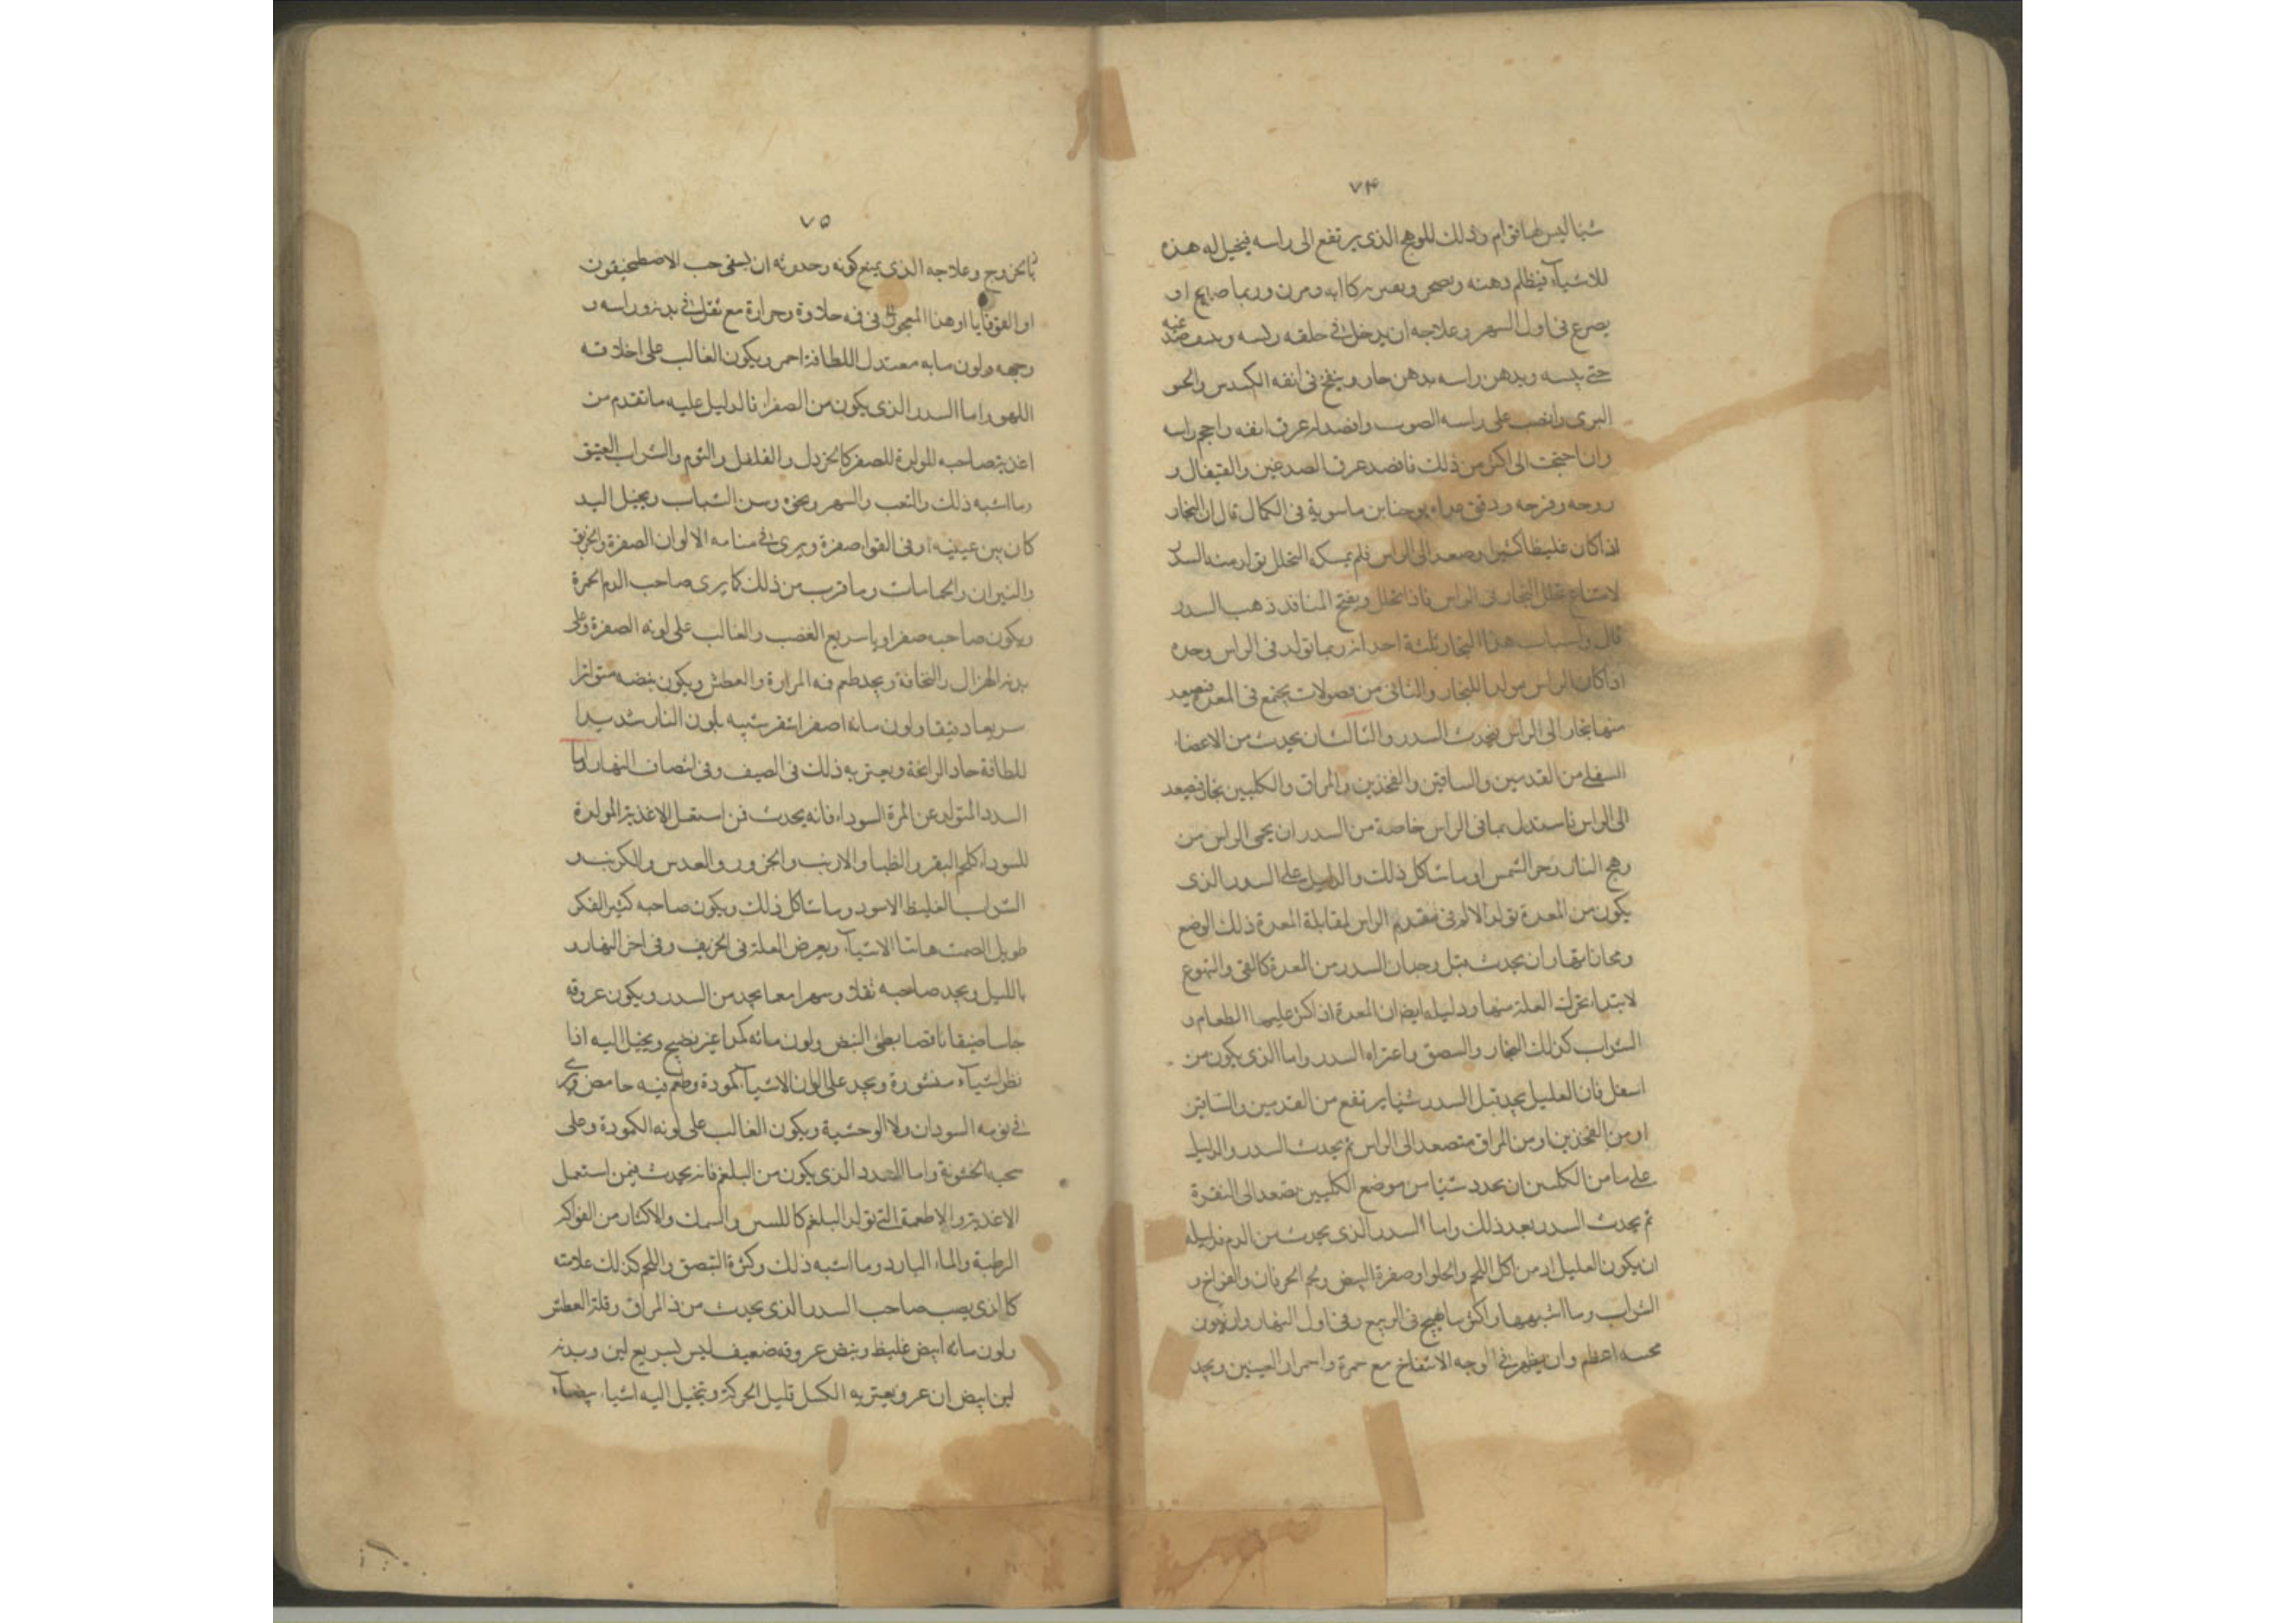 ٧۴
شيئا ليس لها قوام وذلك للوهج الذى يرتفع الى راسه فيخيل له هذه
الاشيآء فيظلم ذهنه وبصره ويعتريه كآبه وحزن وربما صاح او
يصرع فى اول السهر وعلاجه ان يدخل فى حلقه ريشه
حتى يقيئه ويدهن راسه بدهن حار وينفخ فى انفه الكندس والجو
البرى وانصب على راسه الصوب وافصد له عرق انفه واحجم راسه
وان احتجت الى اكثر من ذلك فافصد عرق الصدغين والقيفال و
روحه وفرحه ودقق مداه يوحنا بن ماسوية فى الكمال قال ان البخار
اذا كان غليظا كثيرا وصعد الى الراس فلم يمكنه التحلل تولد منه السدر
لامتناع تحلل البخار فى الراس فاذا تحلل ويفتح المنافذ ذهب السدر
قال واسباب هذا البخار ثلثة احدها انه ربما تولد فى الراس وحده
اذا كان الراس مولدا للبخار والثانى من فضولات يجتمع فى المعدة فيصعد
منها بخار الى الراس فيحدث السدر والثالث ان يحدث من الاعضاء
السفلى من القدمين والساقين والفخذين والمراق والكليتين بخار فيصعد
الى الراس فاستدل بما فى الراس خاصة من السدر ان يحمى الراس من
وهج النار وحر الشمس او ما شاكل ذلك والدليل على السدر الذى
يكون من المعدة تولد الالم فى مقدم الراس لمقابلة المعدة ذلك الوضع
ومحاذاتها وان يحدث قبل وجدان السدر من المعدة كالقى والتهوع
لابتداء تحرك العلة منها ودليله ايضا ان المعدة اذا كثر عليها الطعام و
الشراب كذلك البخار والسصق واعتراه السدر واما الذى يكون من
اسفل فان العليل يجد قبل السدر شيئا يرتفع من القدمين والساقين
او من الفخذين او من المراق متصعد الى الراس ثم يحدث السدر والدليل
على ما من الكليتين ان يجد شيئا من موضع الكليتين يصعد الى النقرة
ثم يحدث السدر بعد ذلك واما السدر الذى يحدث من الدم فدليله
ان يكون العليل ادمن اكل اللحم والحلوا وصفرة البيض ولحم الخرفان والفراخ و
الشراب وما اشبهها واكثر ما يهيج فى الربيع وفى اول النهار وان يكون
مجسه اعظم وان يظهر فى الوجه الانتفاخ مع حمرة واحمرار العينين ويجد
٧٥
بالخروج وعلاجه الذى يمنع كونه وحدوثه ان يسقى حب الاصطمخيقون
او القوقايا او هذا المعجون فى فمه حلاوة وحرارة مع ثقل فى بدنه وراسه و
وجهه ولون مايه معتدل اللطافة احمر ويكون الغالب على اخلاقه
اللهو واما السدر الذى يكون من الصفراء فالدليل عليه ما تقدم من
اغذية صاحبه المولدة للصفرا كالخردل والفلفل والثوم والشراب العتيق
وما اشبه ذلك والتعب والسهر ونحوه وسن الشباب ويخيل اليه
كان بين عينيه او فى القوا صفرة ويرى فى منامه الالوان الصفرة والحريق
والنيران والحمامات وما قرب من ذلك كما يرى صاحب الدم الحمرة
ويكون صاحبه صفراويا سريع الغضب والغالب على لونه الصفرة وعلى
بدنه الهزال والنحافة ويجد طعم فمه المرارة والعطش ويكون نبضه متواترا
سريعا دقيقا ولون مائه اصفر اشقر شبيه بلون النار شديدا
للطافة حاد الرائحة ويعتريه ذلك فى الصيف وفى انصاف النهار واما
السدد المتولد عن المرة السوداء فانه يحدث فمن استعمل الاغذية المولدة
للسوداء كلحم البقر والظبا والارنب والجزور والعدس والكرنب و
الشراب الغليظ الاسود وما شاكل ذلك ويكون صاحبه كثير الفكر
طويل الصمت هائبا الاشيآء ويعرض العلة فى الخريف وفى اخر النهار و
بالليل ويجد صاحبه ثقلا وسهرا معا يجد من السدر ويكون عروقه
جاسا ضيقا ناقصا بطئ النبض ولون مائه كمدا غير نضيج ويخيل اليه اذا
نظر اشيآء منشورة ويجد على الوان الاشيآء كمودة وطعم فيه حامض ويرى
فى نومه السودان ولا الوحشية ويكون الغالب على لونه الكمودة وعلى
سحنه الخشونة واما السدد الذى يكون من البلغم فانه يحدث فيمن استعمل
الاغذية والاطعمة التى تولد البلغم كاللبن والسمك والاكثار من الفواكه
الرطبة والماء البارد وما اشبه ذلك وكثرة التبصق واللحم كذلك علامته
كالذى يصيب صاحب السدر الذى يحدث من ذا المراق وقلة العطش
ولون مائه ابيض غليظ ونبض عروقه ضعيف ليس بسريع لين وبدنه
لين ابيض ان عرق ويعتريه الكسل قليل الحركة ويتخيل اليه اشياء بيضآء